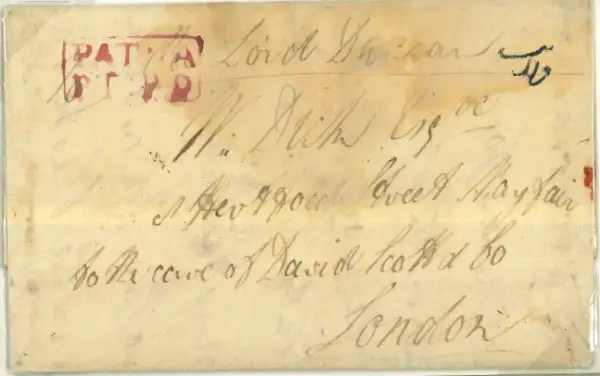 PATNA
Pr Lord Duncan
W. Dick Esqre
Hertford Street Mayfair
to the care of David Scott & Co
London